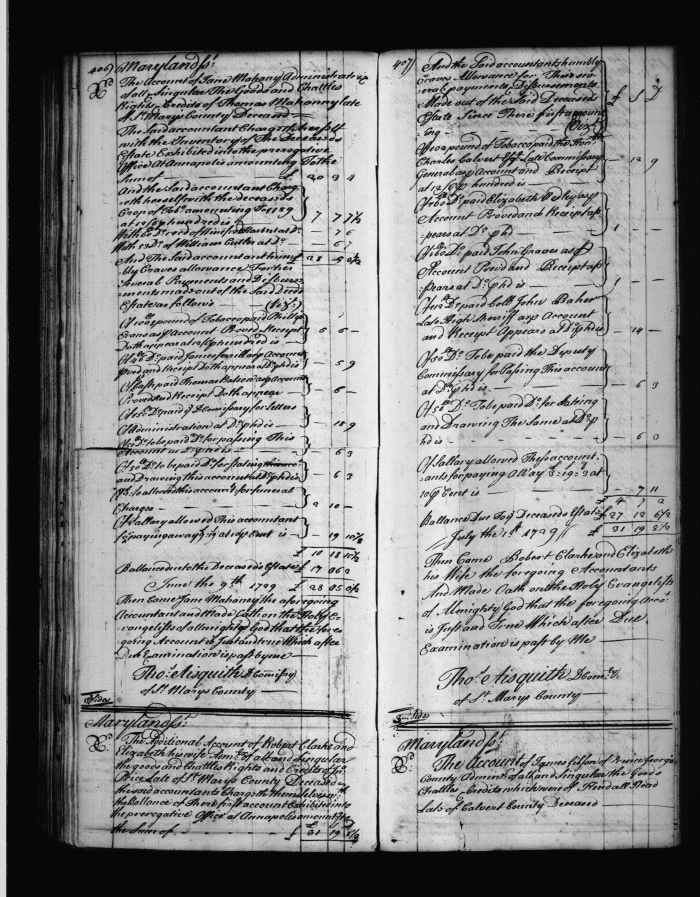 406 Maryland ss:
The Account of Jane Mahony Administratrix
of all & Singular The Goods and Chattles
Rights & Credits of Thomas Mahoney late
of St. Marys County Deceased
The Said accountant Chargeth herself
with the Inventory of The Deceaseds
Estate Exhibited into the prerogative
Office At Annapolis amounting To the
Sum of £ 20 3 4
And the Said accountant Charg-
eth herself with the deceaseds
Crop of Tobo. amounting To 1189
7 7 7½
- 7 6
With 13 Do. of William Cutler at Do. - 6 7
And The Said accountant humb- £ 28 5 0½
bly Craves allowance for the
Several Payments and Disburse-
ments made out of the Said Deced.
Estate as follows (Vizt.)
Of 100 pound of Tobacco paid Phillip
Evans as p Account Proved & Receipt
Doth appear at 10/ p hundred is - 6 -
prov'd and Receipt Doth appear at Do. p hd is - 5 9
Proved and Receipt Doth appear - 6 -
of Administration at Do. p hd is - 18 9
Of 50 Do. to be paid Do. for passing This
Account at Do. p hd is - 6 3
Of 50 Do. to be paid Do. for stating
and drawing this account at Do. p hd is - 6 3
for funeral
Charges 2 10 -
Of Sallary allowed This accountant
19 10½
£ 10 18 10½
Ballance due to the Deceaseds Estate £ 17 06 2
June the 9th 1729 £ 28 05 0½
Then Came Jane Mahoney the aforegoing
Accountant and Made Oath on the Holy E-
vangelists of allmighty God that the fore-
going Account is Just and true Which after
Due Examination is past by me
Thos. Aisquith D Comissry
of St. Marys County
Maryland ss:
The Additional Account of Robert Clarke and
Elizabeth his wife Admrs. of all and Singular
the goods and Chattles Rights and Credits of
Price Late of St. Marys County Deceased
the said accountants Chargeth themselves with
the Ballance of There first account Exhibited into
the prerogative Office at Annapolis amounting to
the Sum of £ 31 19 8½
407 And the Said accountants humbly
Craves Allowance for Their sev-
eral payments & Disbursements
Made out of the Said Deceased
Estate Since There first accompt £ S D
(Vizt.)
Of 102 pound of Tobacco paid the Honle.
Charles Calvert Esqr. Late Commissary
General as p Account and Receipt - 12 9
at 12/6 p hundred is
Of 80 Do. paid Elizabeth
Account Proved and Receipt ap-
pears at Do. p hd 1 -
Of 80 Do. paid John Graves as p
Account Provd. and Receipt ap-
pears at Do. p hd is 1 -
Of 112 Do. paid Collo. John Baker
Late High Sheriff as p Account
and Receipt Appears at Do. p hd is - 14 -
Of 50 Do. To be paid the Deputy
Commissary for Passing This account
at Do. p hd is - 6 3
Of 50 Do. To be paid Do. for Stating
and Drawing The Same at Do. p
hd is - 6 3
Of Sallary allowed These account-
ants for paying away £ 3:19:3 at
10 p Cent is - 7 11
£ 4 7 2
Ballance Due To Deceaseds Estate £ 27 12 6½
July the 1st 1729 £ 31 19 8½
Then Came Robert Clarke and Elizabeth
his Wife the foregoing Accountants
And Made Oath on the Holy Evangelists
of Almighty God that the foregoing Acco.
is Just and True Which after Due
Examination is past by Me
Thos. Aisquith D Comry.
of St. Marys County
Maryland ss:
The Account of James Gibson of Prince Georges
County Admenr. of all and Singular the Goods
Chattles & Credits which were of Kendall Dead
Late of Calvert County Deceased